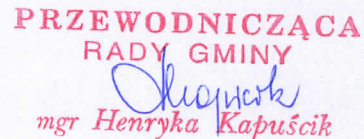 PRZEWODNICZĄCA
RADY GMINY
mgr Henryka Kapuścik